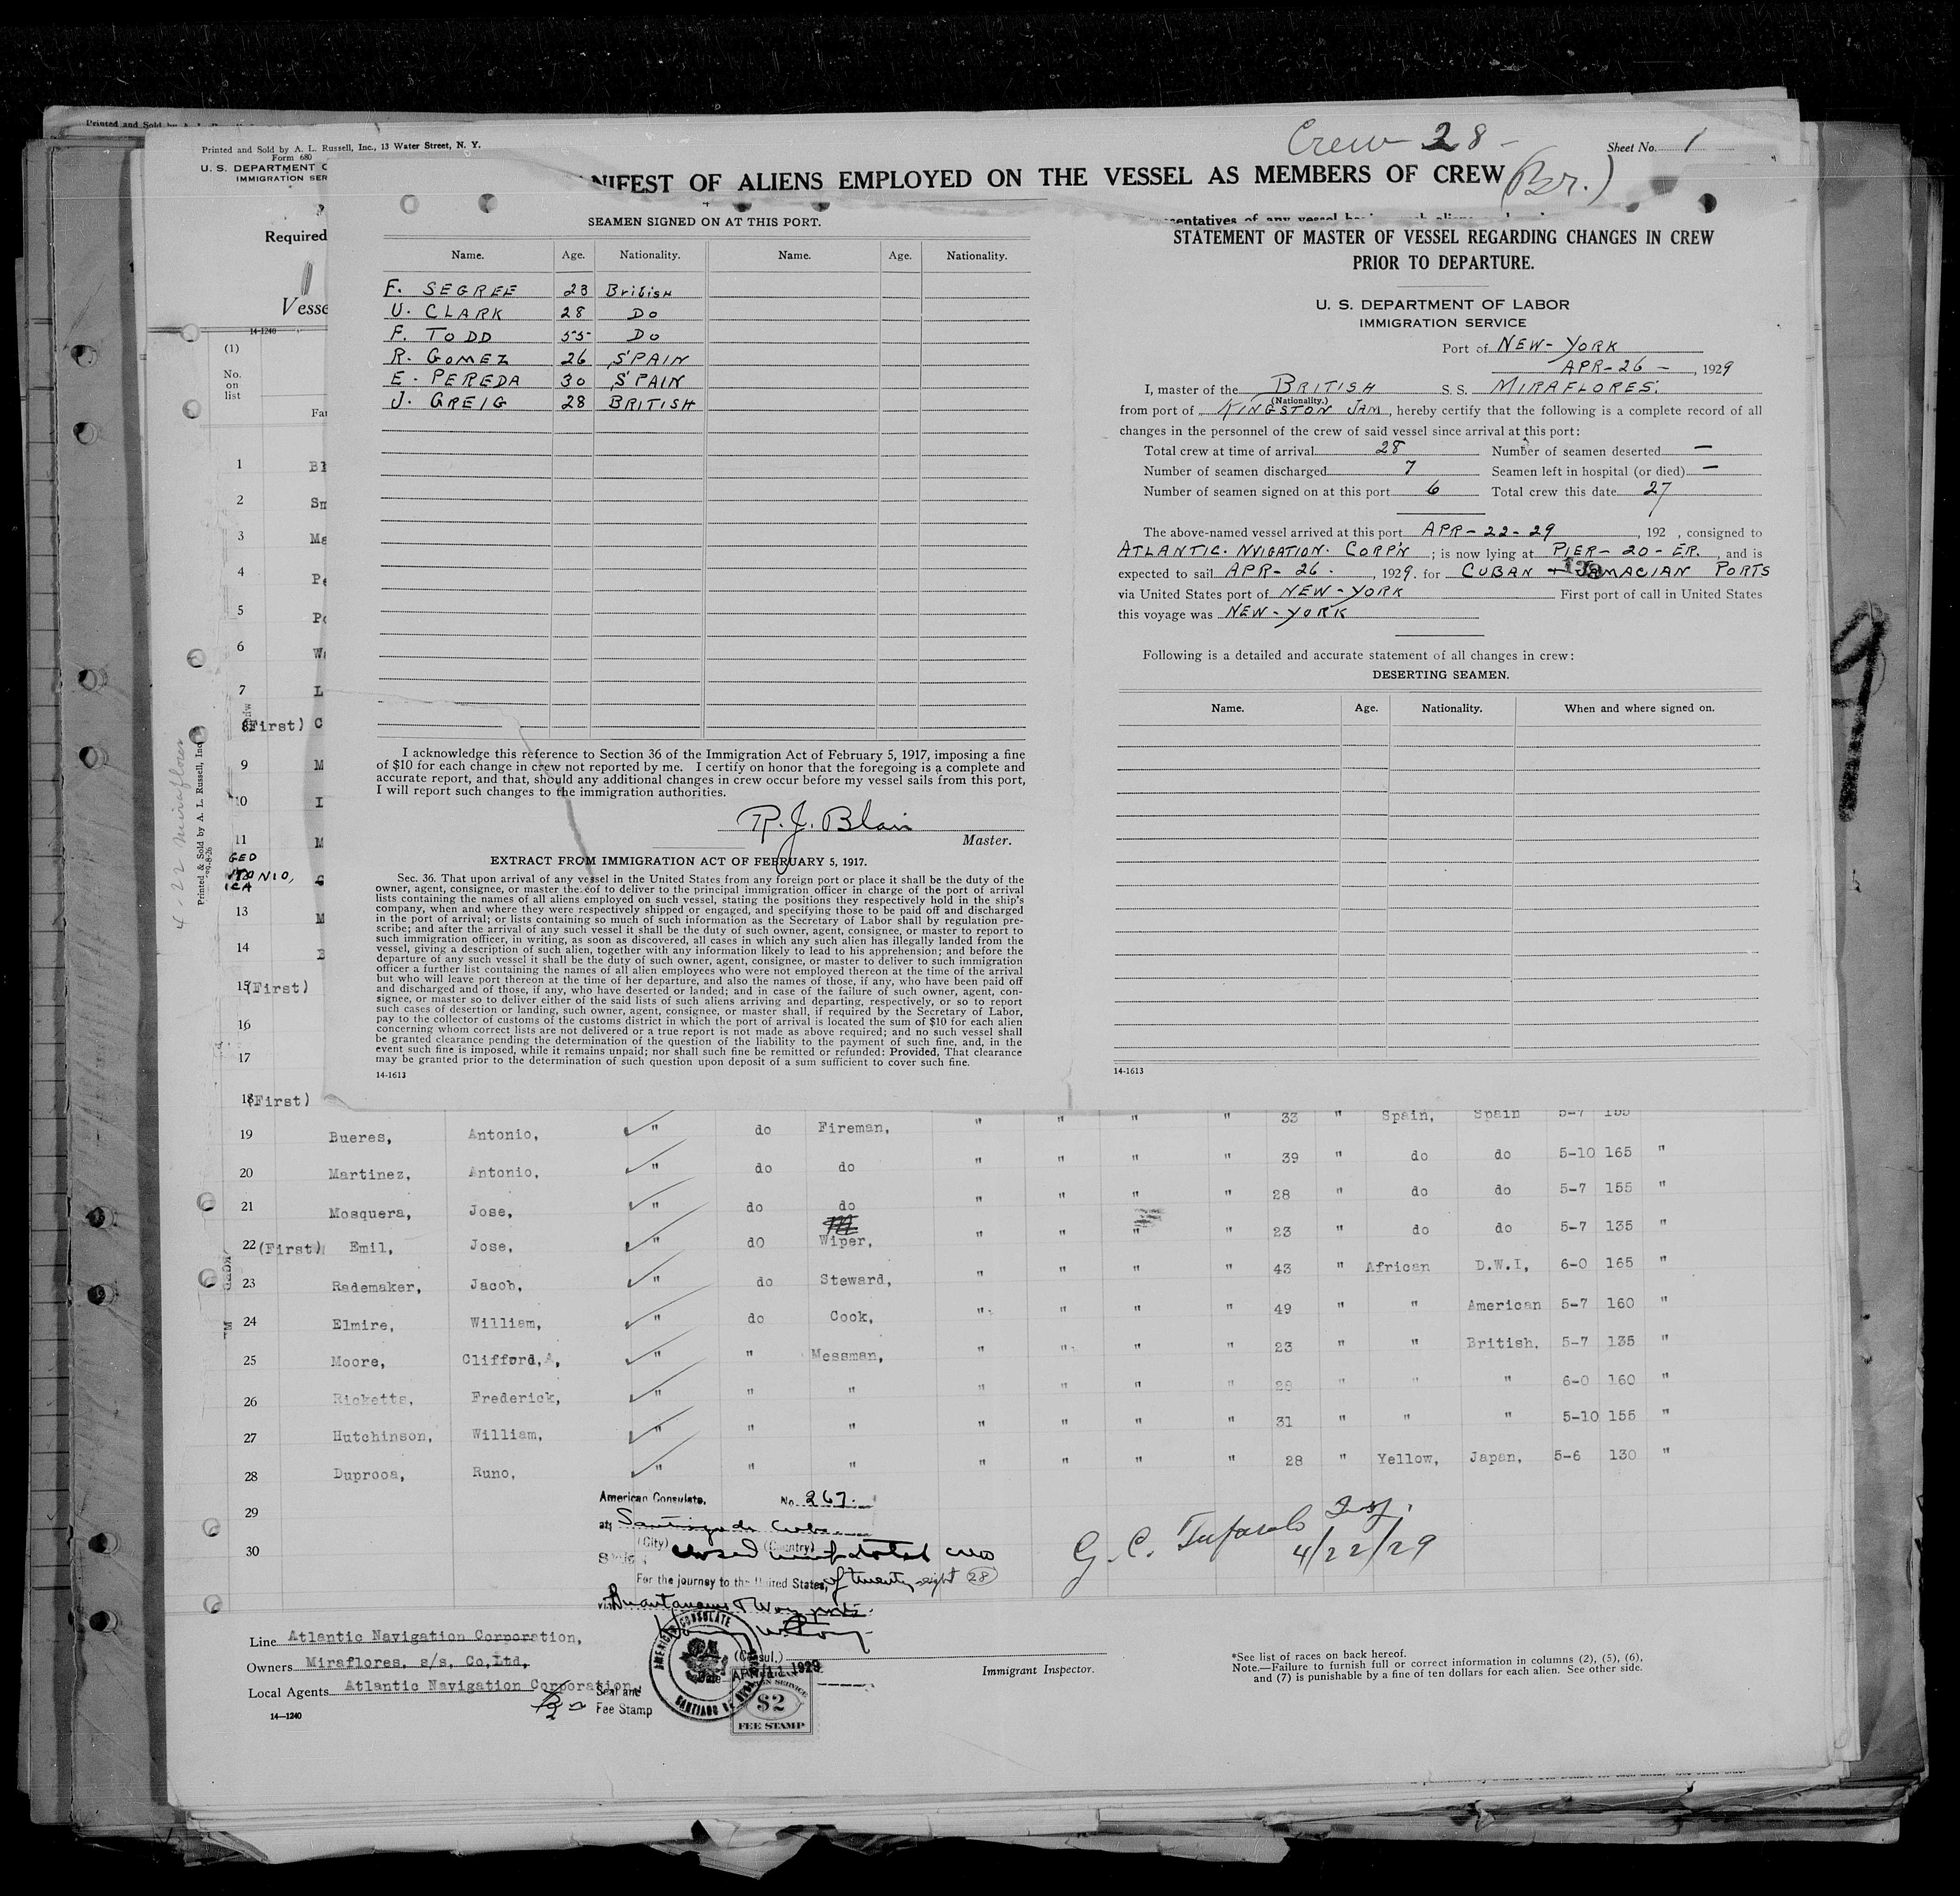 Printed and Sold by A. L. Russell, Inc., 13 Water Street, N. Y.
Form 680
U. S. DEPARTMENT
IMMIGRATION SER
Crew 28 -
(Br.)
Sheet No. 1
NIFEST OF ALIENS EMPLOYED ON THE VESSEL AS MEMBERS OF CREW
Required
Vesse
14-1240
(1)
No.
on
list
SEAMEN SIGNED ON AT THIS PORT.
Name. Age. Nationality. Name. Age. Nationality.
F. SEGREE 23 British
U. CLARK 28 Do
F. TODD 55 Do
R. GOMEZ 26 SPAIN
E. PEREDA 30 SPAIN
J. GREIG 28 BRITISH
I acknowledge this reference to Section 36 of the Immigration Act of February 5, 1917, imposing a fine
of $10 for each change in crew not reported by me. I certify on honor that the foregoing is a complete and
accurate report, and that, should any additional changes in crew occur before my vessel sails from this port,
I will report such changes to the immigration authorities.
R. J. Blair
Master.
EXTRACT FROM IMMIGRATION ACT OF FEBRUARY 5, 1917.
Sec. 36. That upon arrival of any vessel in the United States from any foreign port or place it shall be the duty of the
owner, agent, consignee, or master thereof to deliver to the principal immigration officer in charge of the port of arrival
lists containing the names of all aliens employed on such vessel, stating the positions they respectively hold in the ship's
company, when and where they were respectively shipped or engaged, and specifying those to be paid off and discharged
in the port of arrival; or lists containing so much of such information as the Secretary of Labor shall by regulation pre-
scribe; and after the arrival of any such vessel it shall be the duty of such owner, agent, consignee, or master to report to
such immigration officer, in writing, as soon as discovered, all cases in which any such alien has illegally landed from the
vessel, giving a description of such alien, together with any information likely to lead to his apprehension; and before the
departure of any such vessel it shall be the duty of such owner, agent, consignee, or master to deliver to such immigration
officer a further list containing the names of all alien employees who were not employed thereon at the time of the arrival
but who will leave port thereon at the time of her departure, and also the names of those, if any, who have been paid off
and discharged and of those, if any, who have deserted or landed; and in case of the failure of such owner, agent, con-
signee, or master so to deliver either of the said lists of such aliens arriving and departing, respectively, or so to report
such cases of desertion or landing, such owner, agent, consignee, or master shall, if required by the Secretary of Labor,
pay to the collector of customs of the customs district in which the port of arrival is located the sum of $10 for each alien
concerning whom correct lists are not delivered or a true report is not made as above required; and no such vessel shall
be granted clearance pending the determination of the question of the liability to the payment of such fine, and, in the
event such fine is imposed, while it remains unpaid; nor shall such fine be remitted or refunded: Provided, That clearance
may be granted prior to the determination of such question upon deposit of a sum sufficient to cover such fine.
14-1613
STATEMENT OF MASTER OF VESSEL REGARDING CHANGES IN CREW
PRIOR TO DEPARTURE.
U. S. DEPARTMENT OF LABOR
IMMIGRATION SERVICE
Port of NEW-YORK
APR-26-, 1929
I, master of the BRITISH S. S. MIRAFLORES.
(Nationality.)
from port of KINGSTON JAM, hereby certify that the following is a complete record of all
changes in the personnel of the crew of said vessel since arrival at this port:
Total crew at time of arrival 28 Number of seamen deserted —
Number of seamen discharged 7 Seamen left in hospital (or died) —
Number of seamen signed on at this port 6 Total crew this date 27
The above-named vessel arrived at this port APR-22-29, 192 , consigned to
ATLANTIC. NVIGATION. CORP'N; is now lying at PIER-20-ER., and is
expected to sail APR-26., 1929. for CUBAN + JAMACIAN PORTS
via United States port of NEW-YORK First port of call in United States
this voyage was NEW-YORK
Following is a detailed and accurate statement of all changes in crew:
DESERTING SEAMEN.
Name. Age. Nationality. When and where signed on.
14-1613
4-22 Miraflores
Printed & Sold by A. L. Russell, Inc
1
2
3
4
5
6
7
8 (First)
9
10
11
13
14
15 (First)
16
17
18 (First) 33 " Spain, Spain 5-7 155
19 Bueres, Antonio, " do Fireman, " " " " 33 " Spain,
20 Martinez, Antonio, " do do " " " " 39 " do do 5-10 165 "
21 Mosquera, Jose, " do do " " " " 28 " do do 5-7 155 "
22 (First) Emil, Jose, " do Wiper, " " " " 23 " do do 5-7 135 "
23 Rademaker, Jacob, " do Steward, " " " " 43 " African D.W.I, 6-0 165 "
24 Elmire, William, " do Cook, " " " " 49 " " American 5-7 160 "
25 Moore, Clifford,A, " " Messman, " " " " 23 " " British, 5-7 135 "
26 Ricketts, Frederick, " " " " " " " 28 " " " 6-0 160 "
27 Hutchinson, William, " " " " " " " 31 " " " 5-10 155 "
28 Duprooa, Runo, " " " " " " " 28 " Yellow, Japan, 5-6 130 "
29
30
American Consulate, No. 267.
at Santiago de Cuba
(City) (Country)
For the journey to the United States, of twenty-eight (28)
AMERICAN CONSULATE
SANTIAGO DE CUBA
(Consul.)
Seal and
Fee Stamp
$2
FEE STAMP
G. C.
4/22/29
Line Atlantic Navigation Corporation,
Owners Miraflores, s/s, Co,Ltd,
Local Agents Atlantic Navigation Corporation,
14—1240
Immigrant Inspector.
*See list of races on back hereof.
Note.—Failure to furnish full or correct information in columns (2), (5), (6),
and (7) is punishable by a fine of ten dollars for each alien. See other side.